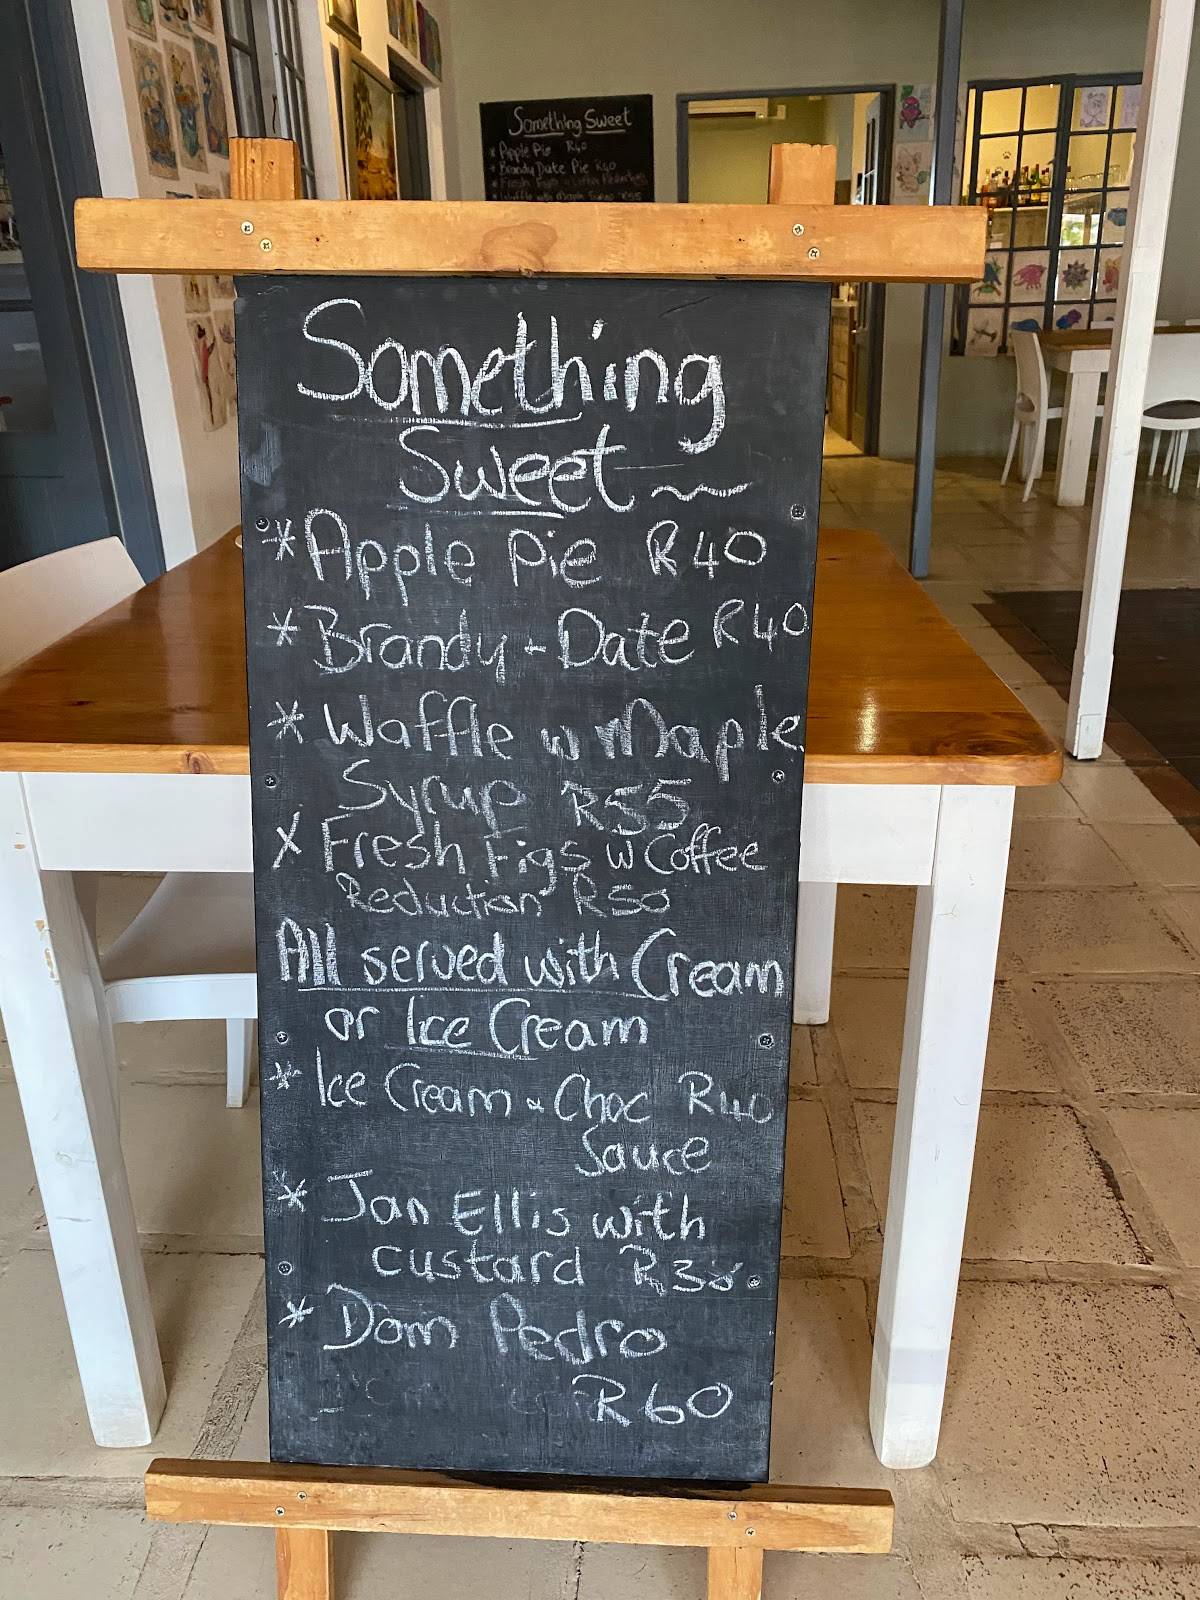 Something Sweet
* Apple Pie R40
* Brandy Date Pie R40
Something
Sweet ~
* Apple Pie R40
* Brandy + Date R40
* Waffle w Maple
Syrup R55
x Fresh Figs w Coffee
Reduction R50
All served with Cream
or Ice Cream
* Ice Cream & Choc R40
Sauce
* Jan Ellis with
custard
* Dom Pedro
R60